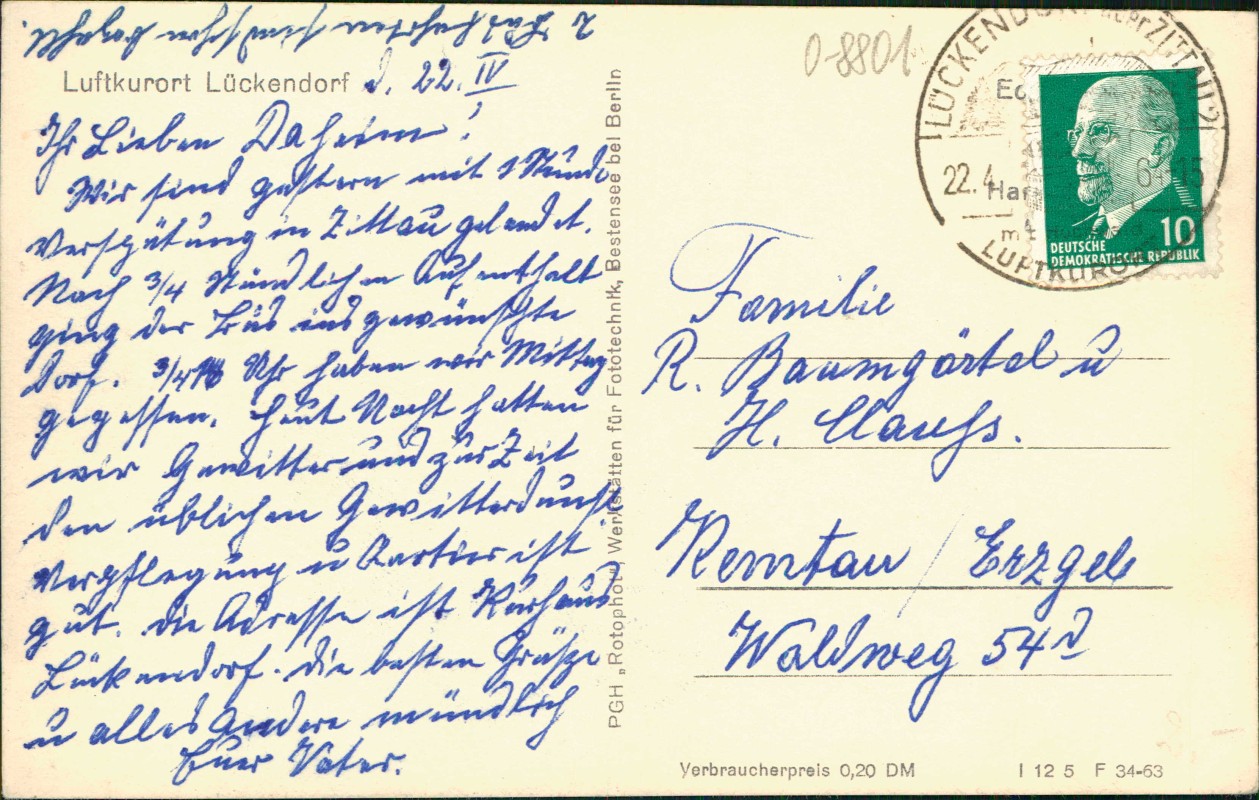 Luftkurort Lückendorf d. 22. IV
Ihr Lieben Daheim!
Wir sind gestern mit 1 Stunde
Verspätung in Zittau gelandet.
Nach 3/4 stündlichen Aufenthalt
ging der Bus ins gewünschte
Dorf. Uhr haben wir Mittag
gegessen. Heut Nacht hatten
wir Gewitter und zur Zeit
den üblichen Gewitterdunst.
Verpflegung u Quartier ist
gut. Die Adresse ist Kurhaus
Lückendorf. Die besten Grüße
u alles Andere mündlich
Euer Vater.
PGH „Rotophot", Werkstätten für Fototechnik, Bestensee bei Berlin
0-8801
LÜCKENDORF ZITTAU 2
22.4. 64-15
LUFTKURORT
10
DEUTSCHE
DEMOKRATISCHE REPUBLIK
Familie
R. Baumgärtel u
H. Clauss.
Kemtau / Erzgeb
Waldweg 54d
Verbraucherpreis 0,20 DM
I 12 5 F 34-63